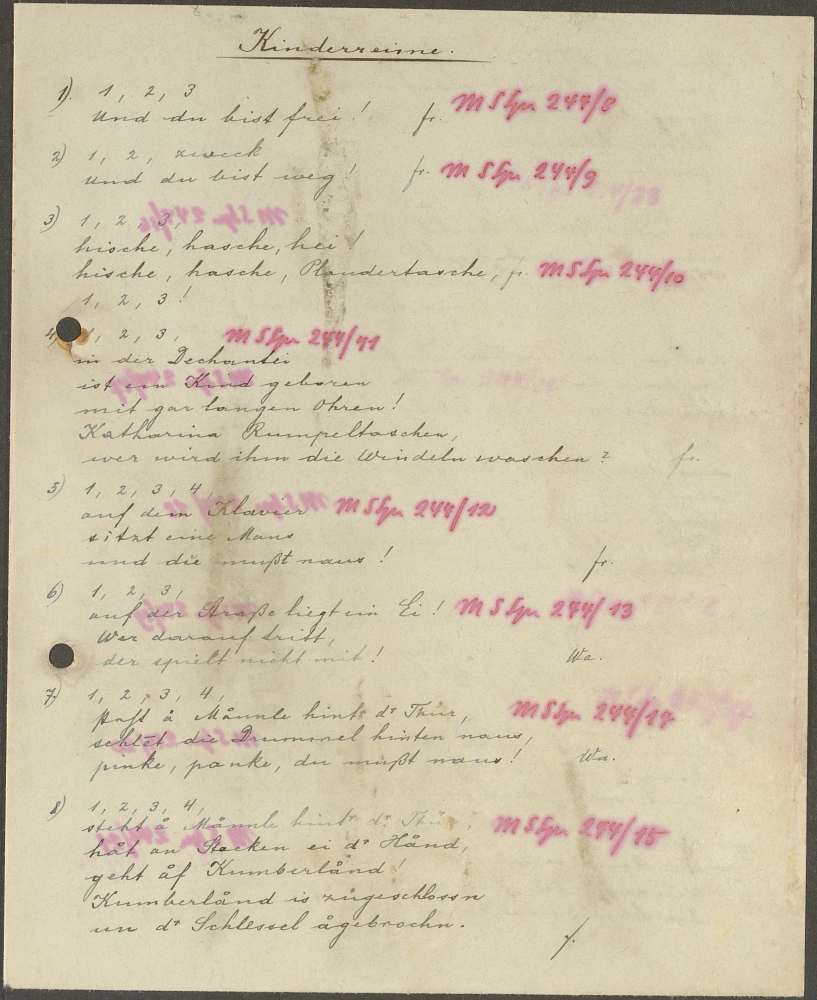 Kinderreime.
1). 1, 2, 3
Und du bist frei! fr. M S Spr 244/8
2) 1, 2, zweck
Und du bist weg! fr. M S Spr 244/9
3) 1, 2, 3,
hische, hasche, hei!
hische, hasche, Plaudertasche, fr. M S Spr 244/10
1, 2, 3!
4) 1, 2, 3, M S Spr 244/11
in der Dechantei
ist ein Kind geboren
mit gar langen Ohren!
Katharina Rumpeltaschen,
wer wird ihm die Windeln waschen? fr.
5) 1, 2, 3, 4
auf dem Klavier M S Spr 244/12
sitzt eine Maus
und die mußt naus! fr.
6) 1, 2, 3,
auf der Straße liegt ein Ei! M S Spr 244/13
Wer darauf tritt,
der spielt nicht mit! Wa.
7.) 1, 2, 3, 4,
å Månnle hintr dr Thür, M S Spr 244/14
schlėt die Drummel hinten naus,
pinke, panke, du mußt naus! Wa.
8) 1, 2, 3, 4,
steht å Månnle hintr dr Thür, M S Spr 244/15
håt an Stecken ei dr Hånd,
geht åf Kumberlånd!
Kumberlånd is zůgeschlossn
un dr Schlessel ågebrochn.
f.